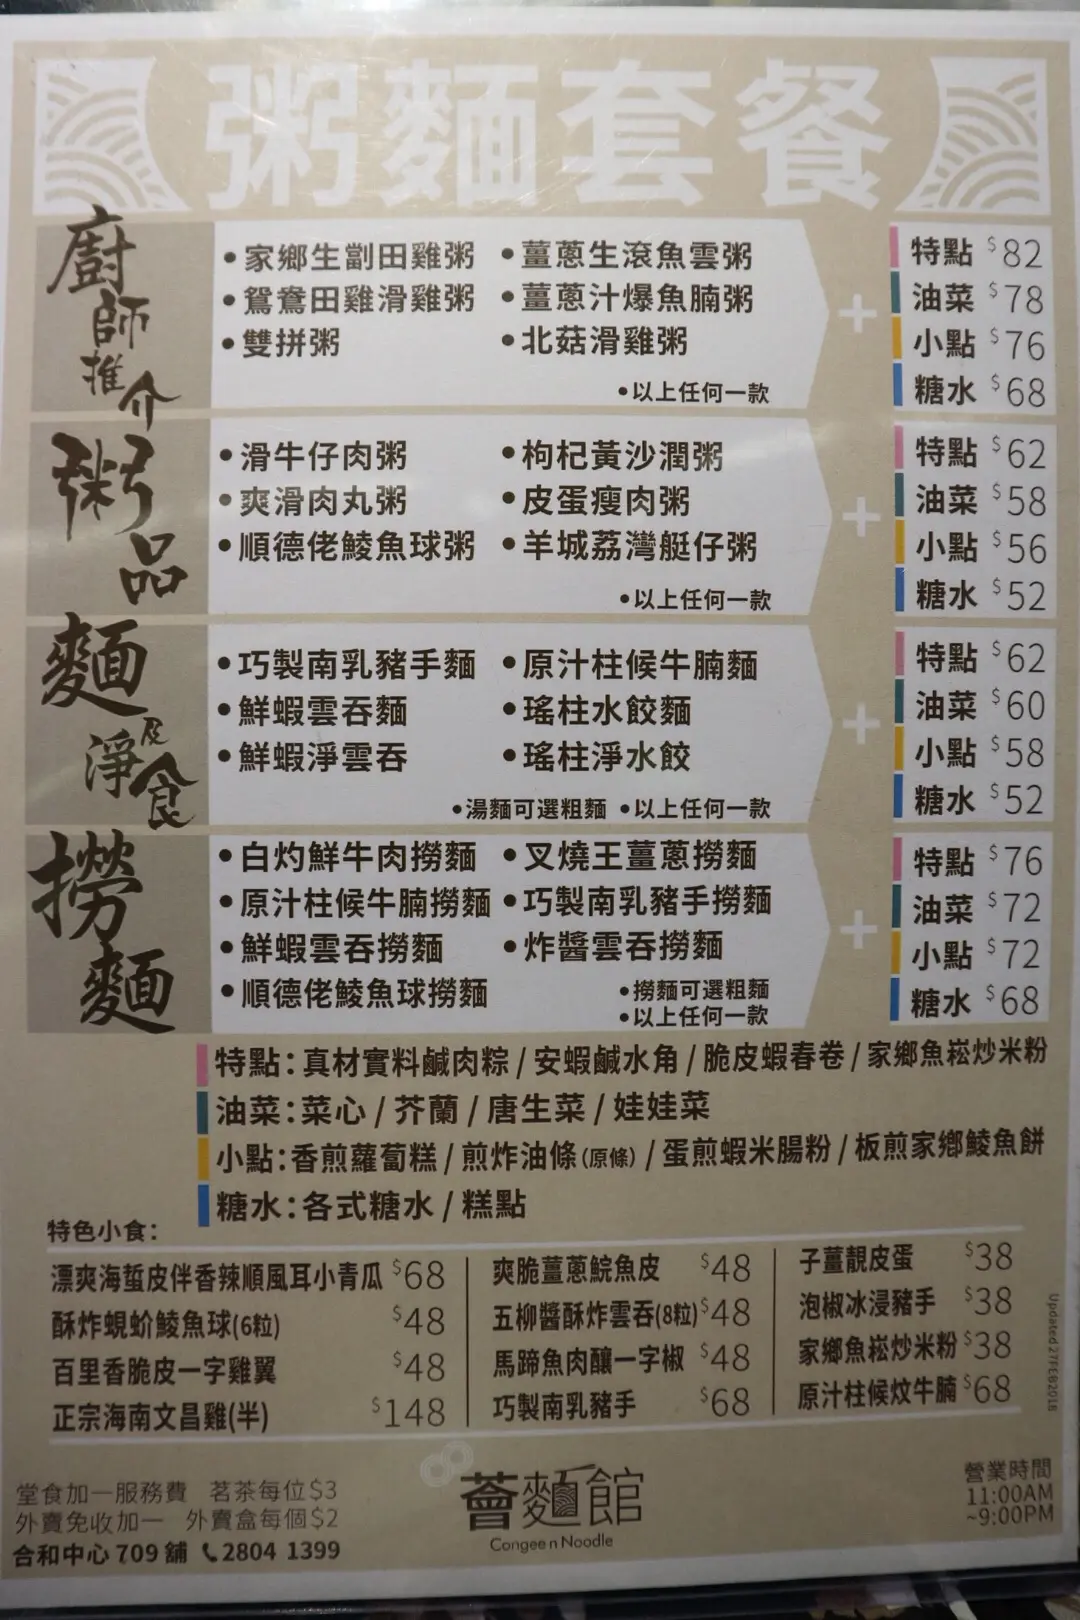 粥麵套餐
廚師推介
•家鄉生劏田雞粥 •薑蔥生滾魚雲粥
•鴛鴦田雞滑雞粥 •薑蔥汁爆魚腩粥
•雙拼粥 •北菇滑雞粥
•以上任何一款
+
特點 $82
油菜 $78
小點 $76
糖水 $68
粥品
•滑牛仔肉粥 •枸杞黃沙潤粥
•爽滑肉丸粥 •皮蛋瘦肉粥
•順德佬鯪魚球粥 •羊城荔灣艇仔粥
•以上任何一款
+
特點 $62
油菜 $58
小點 $56
糖水 $52
麵及淨食
•巧製南乳豬手麵 •原汁柱候牛腩麵
•鮮蝦雲吞麵 •瑤柱水餃麵
•鮮蝦淨雲吞 •瑤柱淨水餃
•湯麵可選粗麵 •以上任何一款
+
特點 $62
油菜 $60
小點 $58
糖水 $52
撈麵
•白灼鮮牛肉撈麵 •叉燒王薑蔥撈麵
•原汁柱候牛腩撈麵 •巧製南乳豬手撈麵
•鮮蝦雲吞撈麵 •炸醬雲吞撈麵
•順德佬鯪魚球撈麵 •撈麵可選粗麵
•以上任何一款
+
特點 $76
油菜 $72
小點 $72
糖水 $68
特點：真材實料鹹肉粽 / 安蝦鹹水角 / 脆皮蝦春卷 / 家鄉魚崧炒米粉
油菜：菜心 / 芥蘭 / 唐生菜 / 娃娃菜
小點：香煎蘿蔔糕 / 煎炸油條(原條) / 蛋煎蝦米腸粉 / 板煎家鄉鯪魚餅
糖水：各式糖水 / 糕點
特色小食：
漂爽海蜇皮伴香辣順風耳小青瓜 $68
酥炸蜆蚧鯪魚球(6粒) $48
百里香脆皮一字雞翼 $48
正宗海南文昌雞(半) $148
爽脆薑蔥鯇魚皮 $48
五柳醬酥炸雲吞(8粒) $48
馬蹄魚肉釀一字椒 $48
巧製南乳豬手 $68
子薑靚皮蛋 $38
泡椒冰浸豬手 $38
家鄉魚崧炒米粉 $38
原汁柱候炆牛腩 $68
Updated 27FEB2018
堂食加一服務費 茗茶每位$3
外賣免收加一 外賣盒每個$2
合和中心 709 舖 2804 1399
薈麵館
Congee n Noodle
營業時間
11:00AM
~9:00PM